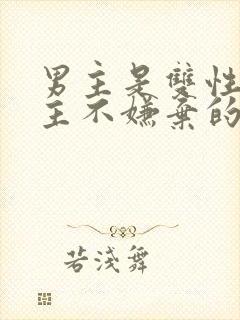 男主是雙性
主不嫌棄的
若淺舞